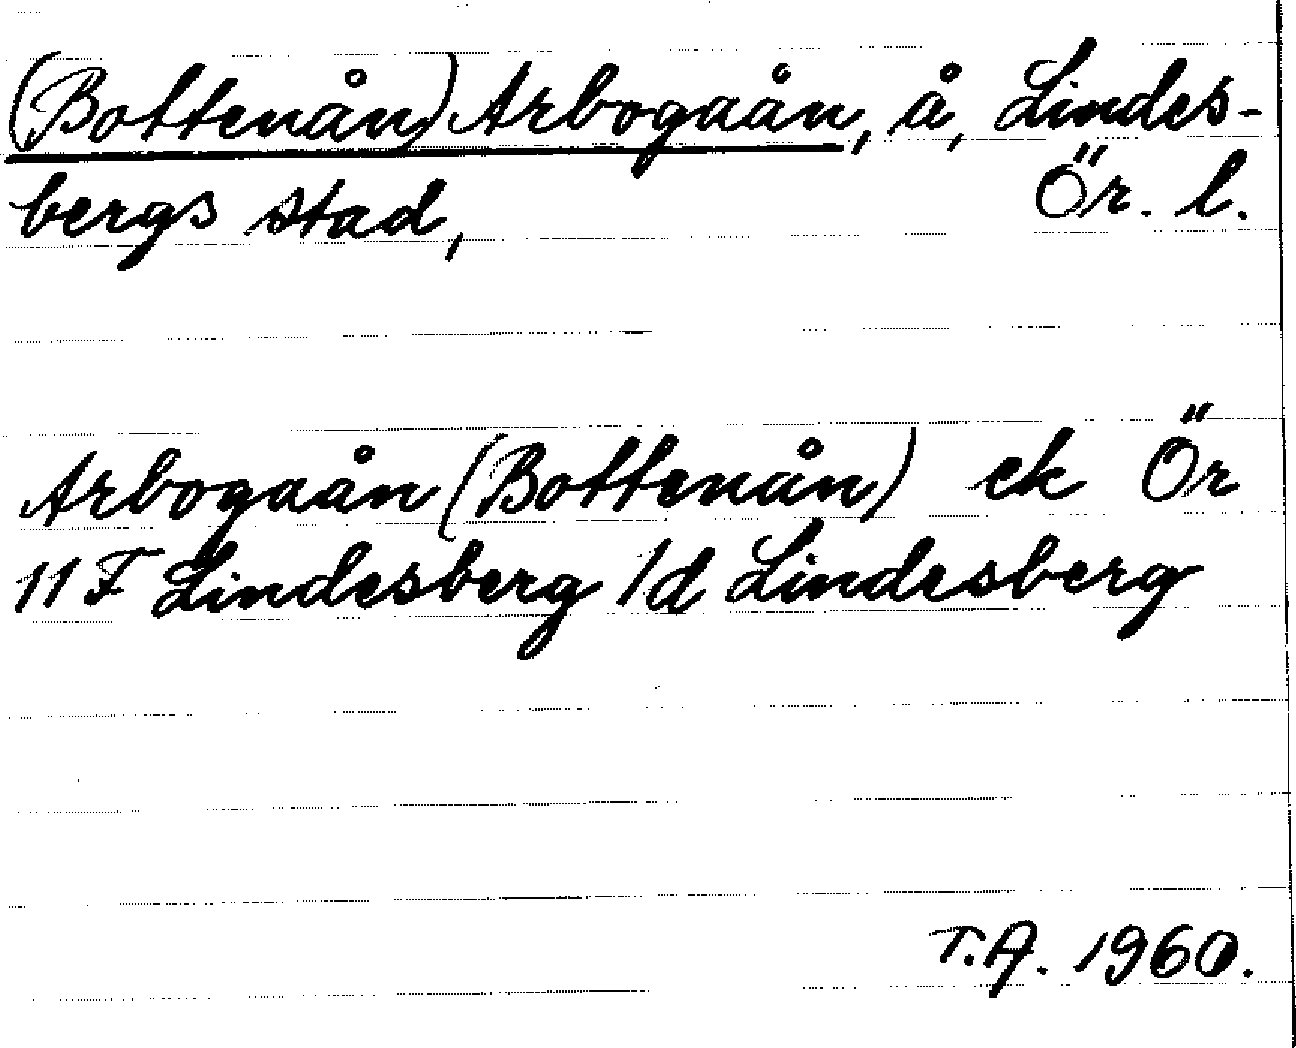 (Bottenån) Arbogaån, å, Lindes-
bergs stad, Ör. l.
Arbogaån (Bottenån) ek Ör
11 F Lindesberg 1d Lindesberg
T.A. 1960.